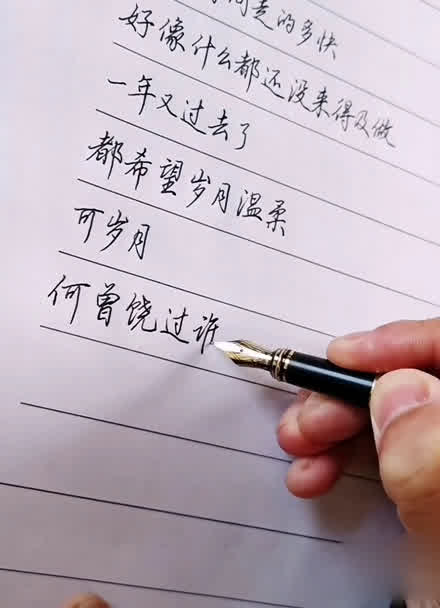 间走的多快
好像什么都还没来得及做
一年又过去了
都希望岁月温柔
可岁月
何曾饶过谁